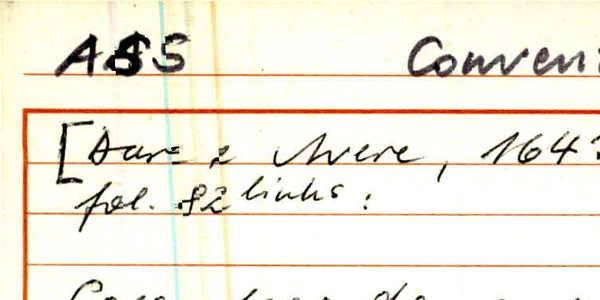 ASS Conven
[Dare e Avere, 164
fol. 82 links: